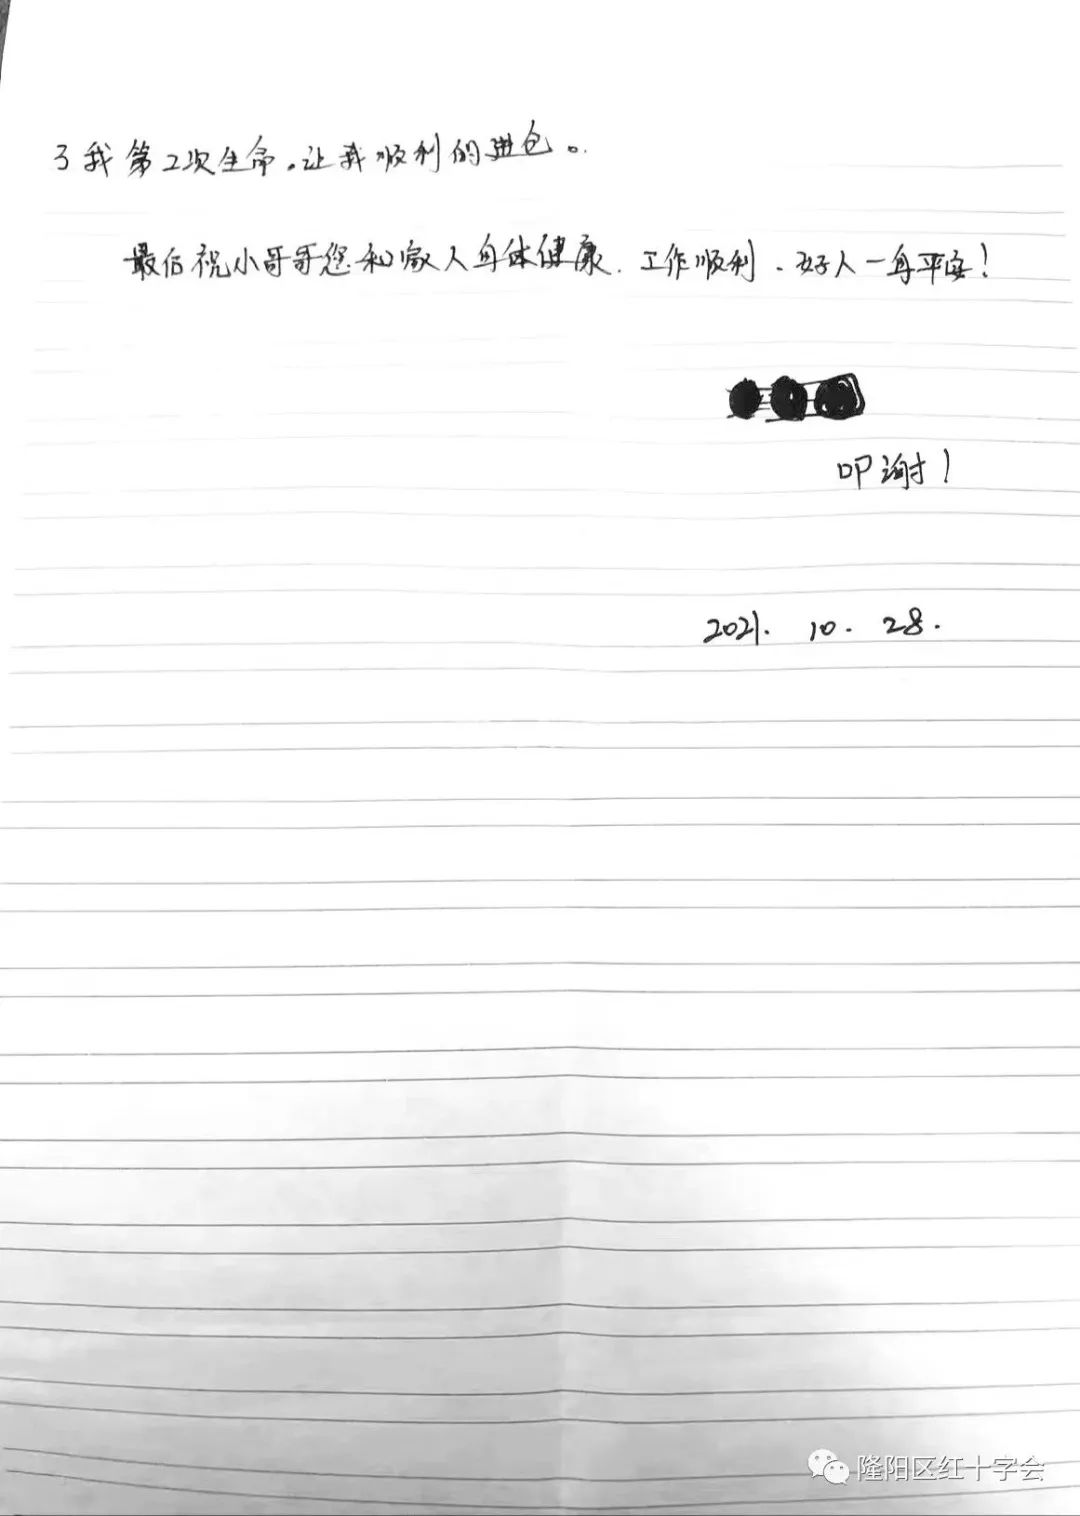 了我第2次生命。让我顺利的进仓。
最后祝小哥哥您和家人身体健康、工作顺利、好人一身平安!
叩谢!
2021. 10. 28.
隆阳区红十字会